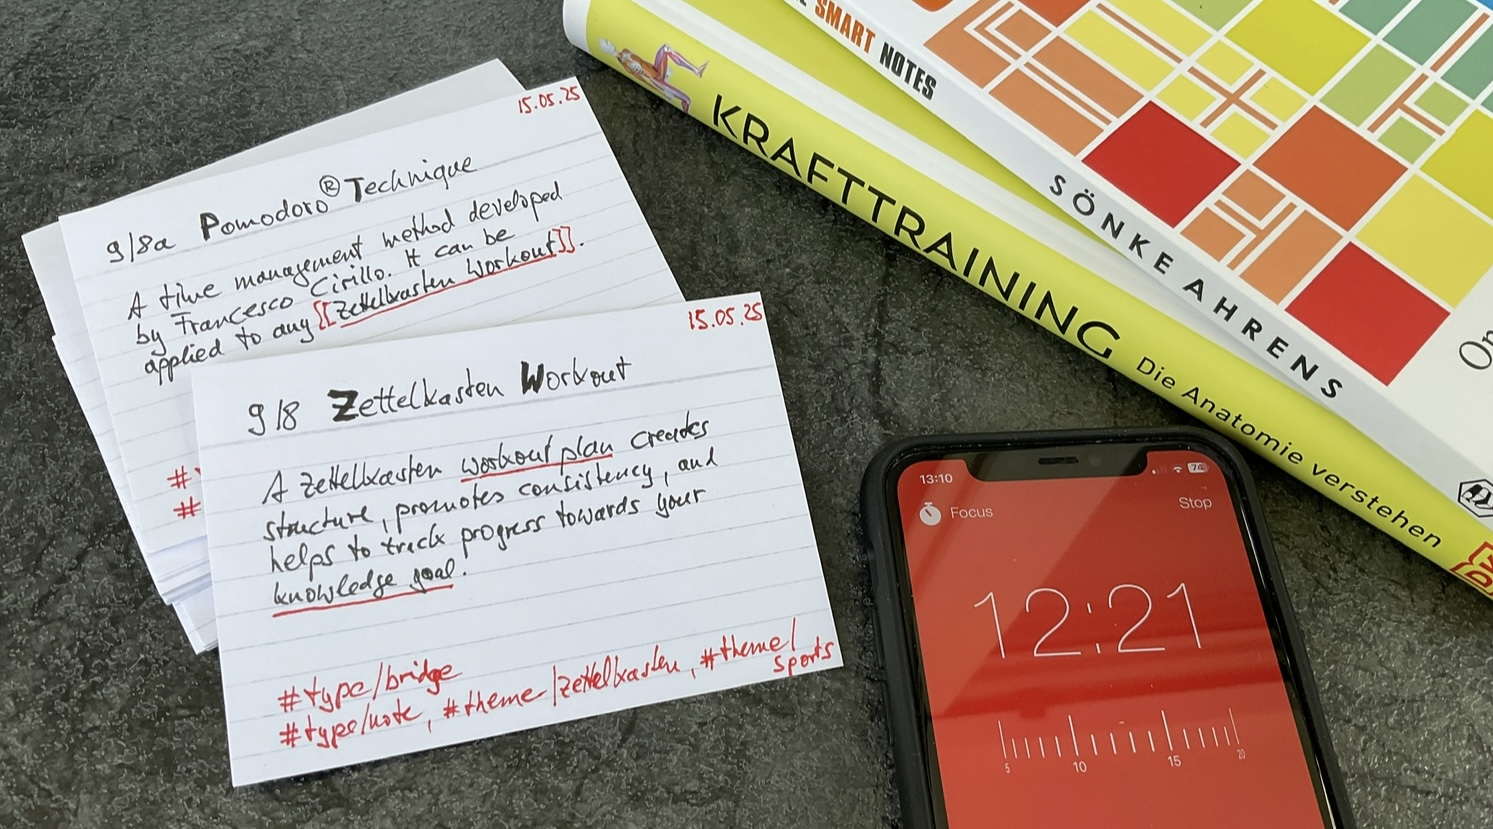 15.05.25
9/8a Pomodoro® Technique
A time management method developed
by Francesco Cirillo. It can be
applied to any [[Zettelkasten Workout]].
#
#
15.05.25
9/8 Zettelkasten Workout
A Zettelkasten workout plan creates
structure, promotes consistency, and
helps to track progress towards your
knowledge goal.
#type/bridge
#type/note, #theme/zettelkasten, #theme/
sports
SMART NOTES
SÖNKE AHRENS
KRAFTTRAINING Die Anatomie verstehen
13:10
74
Focus
Stop
12:21
5 10 15 20